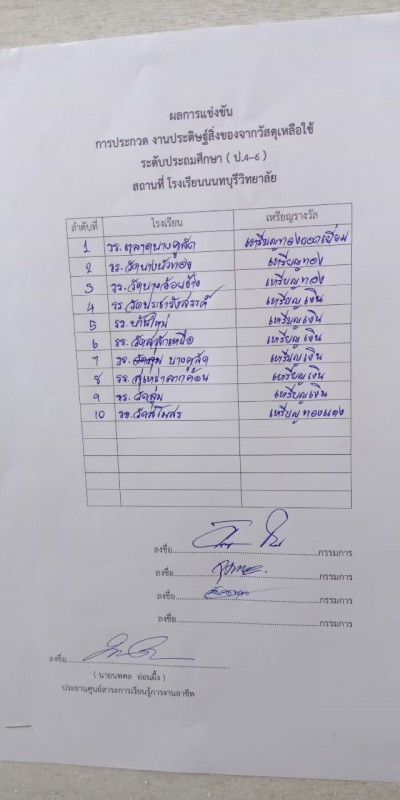 ผลการแข่งขัน
การประกวด งานประดิษฐ์สิ่งของจากวัสดุเหลือใช้
ระดับประถมศึกษา ( ป.4-6 )
สถานที่ โรงเรียนนนทบุรีวิทยาลัย
ลำดับที่ โรงเรียน เหรียญรางวัล
1 รร.ตลาดบางคูลัด เหรียญทองยอดเยี่ยม
2 รร.วัดบางบัวทอง เหรียญทอง
3 รร.วัดบางอ้อยช้าง เหรียญทอง
4 รร.วัดประชารังสรรค์ เหรียญเงิน
5 รร. เหรียญเงิน
6 รร.วัดสลักเหนือ เหรียญเงิน
7 รร. บางคูลัด เหรียญเงิน
8 รร.สุเหร่าลากค้อน เหรียญเงิน
9 รร.วัดลุ่ม เหรียญเงิน
10 รร.วัดสโมสร เหรียญทองแดง
ลงชื่อ กรรมการ
ลงชื่อ กรรมการ
ลงชื่อ กรรมการ
ลงชื่อ กรรมการ
ลงชื่อ
( นายนพดล อ่อนผึ้ง )
ประธานศูนย์สาระการเรียนรู้การงานอาชีพ